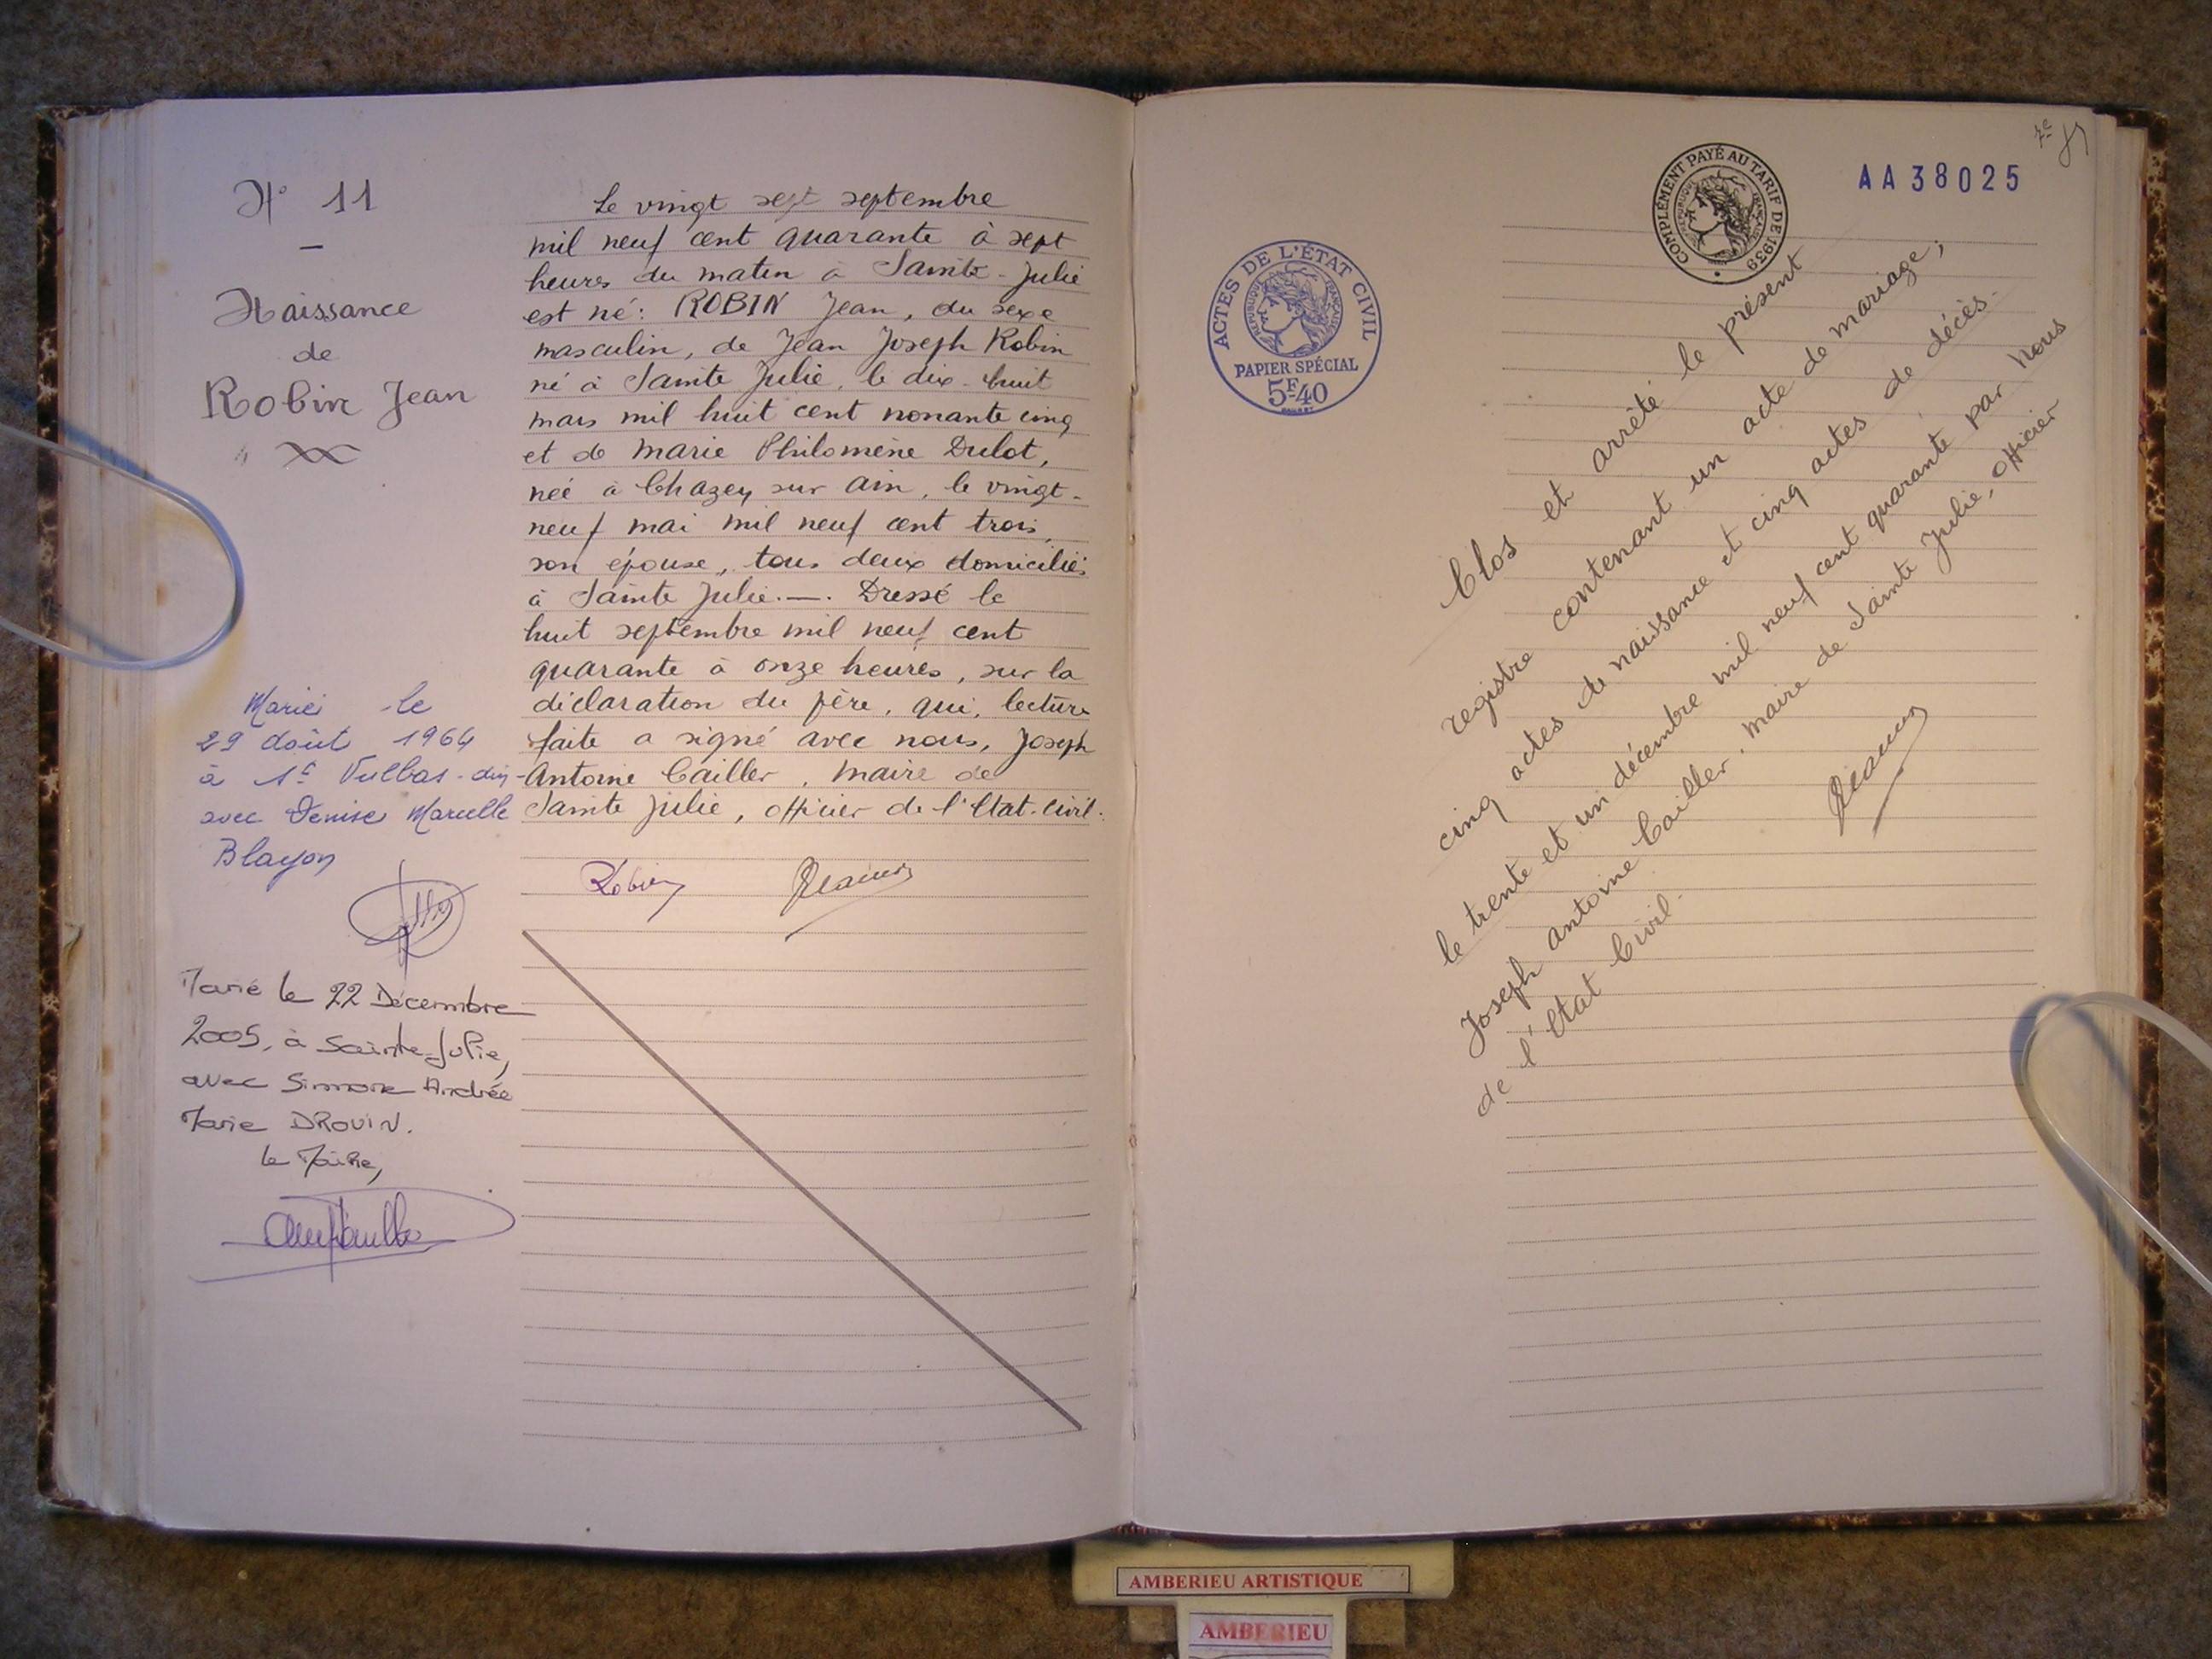 N° 11
Naissance
de
Robin Jean
Le vingt sept septembre
mil neuf cent quarante à sept
heures du matin à Sainte-Julie
est né: ROBIN Jean, du sexe
masculin, de Jean Joseph Robin
né à Sainte Julie, le dix-huit
mars mil huit cent nonante cinq
et de Marie Philomène Dulot,
née à Chazey sur Ain, le vingt-
neuf mai mil neuf cent trois,
son épouse, tous deux domiciliés
à Sainte Julie.—. Dressé le
huit septembre mil neuf cent
quarante à onze heures, sur la
déclaration du père, qui, lecture
faite a signé avec nous, Joseph
Antoine Cailler, maire de
Sainte Julie, officier de l'Etat-Civil.
Robin
Marié le
29 août 1964
à St Vulbas-Ain
avec Denise Marcelle
Blayon
Marié le 22 Décembre
2005, à Sainte-Julie,
avec Simone Andrée
Marie DROUIN.
Le Maire,
COMPLÉMENT PAYÉ AU TARIF DE 1939
REPUBLIQUE FRANÇAISE
AA38025
ACTES DE L'ÉTAT CIVIL
REPUBLIQUE FRANÇAISE
PAPIER SPÉCIAL
5F40
Clos et arrêté le présent
registre contenant un acte de mariage;
cinq actes de naissance et cinq actes de décès.
le trente et un décembre mil neuf cent quarante par nous
Joseph Antoine Cailler, maire de Sainte Julie, officier
de l'Etat Civil.
AMBERIEU ARTISTIQUE
AMBERIEU